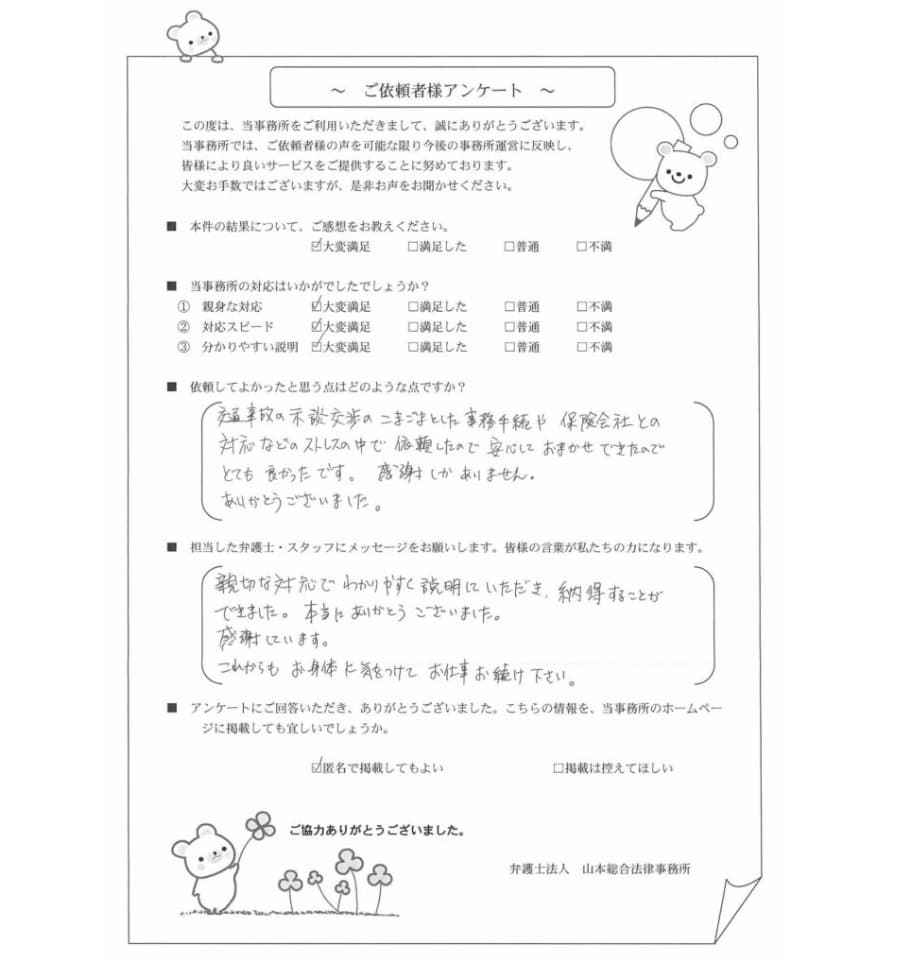 ～　ご依頼者様アンケート　～
この度は、当事務所をご利用いただきまして、誠にありがとうございます。
当事務所では、ご依頼者様の声を可能な限り今後の事務所運営に反映し、
皆様により良いサービスをご提供することに努めております。
大変お手数ではございますが、是非お声をお聞かせください。
■　本件の結果について、ご感想をお教えください。
☑大変満足　□満足した　□普通　□不満
■　当事務所の対応はいかがでしたでしょうか？
①　親身な対応　☑大変満足　□満足した　□普通　□不満
②　対応スピード　☑大変満足　□満足した　□普通　□不満
③　分かりやすい説明　☑大変満足　□満足した　□普通　□不満
■　依頼してよかったと思う点はどのような点ですか？
交通事故の示談交渉のこまごまとした事務手続や 保険会社との
対応などのストレスの中で 依頼したので 安心して おまかせ できたので
とても 良かったです。 感謝しか ありません。
ありがとうございました。
■　担当した弁護士・スタッフにメッセージをお願いします。皆様の言葉が私たちの力になります。
親切な対応で わかりやすく 説明していただき、納得することが
できました。 本当に ありがとう ございました。
感謝しています。
これからも お身体に気をつけて お仕事お続け下さい。
■　アンケートにご回答いただき、ありがとうございました。こちらの情報を、当事務所のホームペー
ジに掲載しても宜しいでしょうか。
☑匿名で掲載してもよい　□掲載は控えてほしい
ご協力ありがとうございました。
弁護士法人　山本総合法律事務所